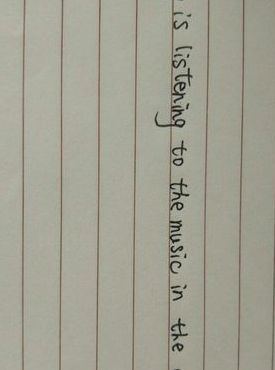 is listening to the music in the